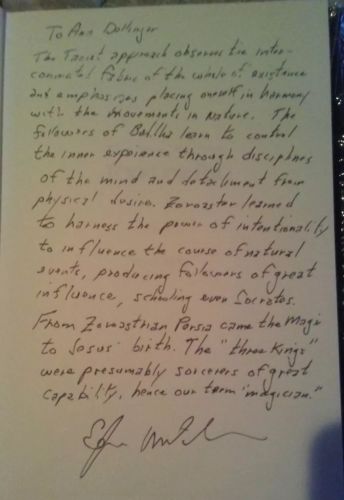 To Ann Dollinger
The Taoist approach observes the inter-
connected fabric of the whole of existence
and emphasizes placing oneself in harmony
with the movements in nature. The
followers of Buddha learn to control
the inner experience through disciplines
of the mind and detachment from
physical desire. Zoroaster learned
to harness the power of intentionality
to influence the course of natural
events, producing followers of great
influence, schooling even Socrates.
From Zoroastrian Persia came the Magi
to Jesus' birth. The "three kings"
were presumably sorcerers of great
capability, hence our term "magician."